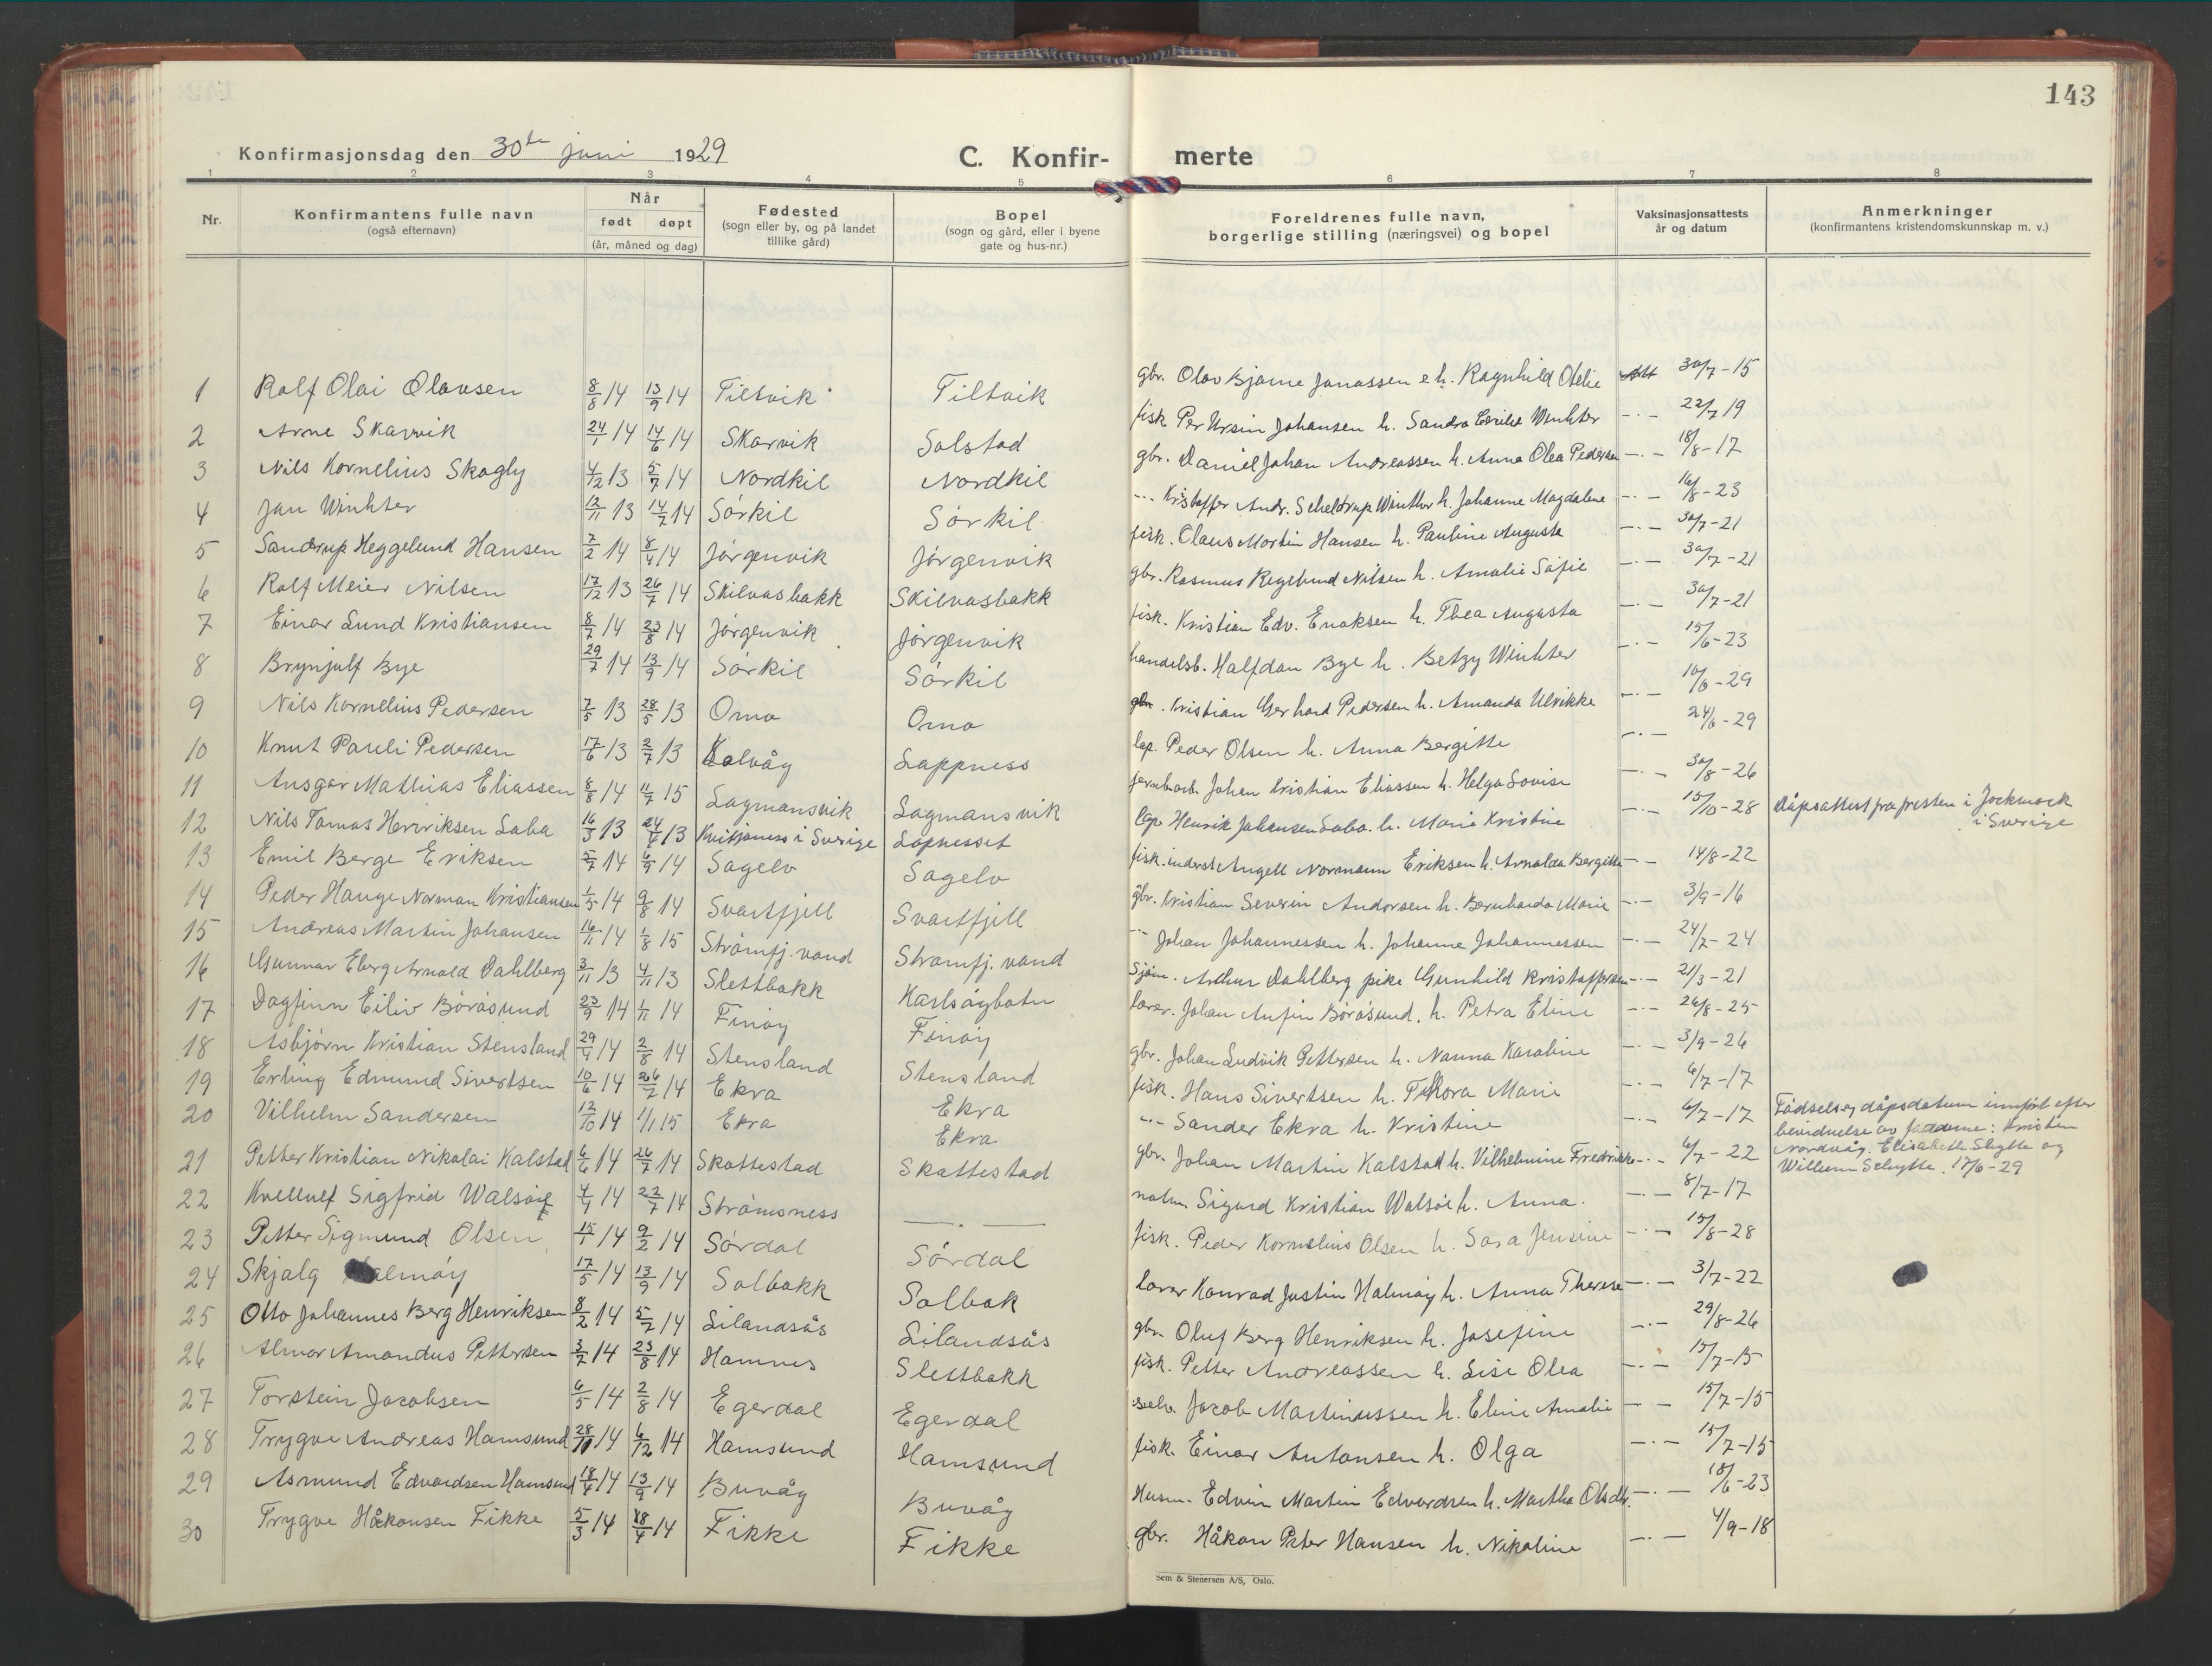 143
Konfirmasjonsdag den 30te juni 1929
C. Konfir- merte
1 2 3 4 5 6 7 8
Nr. Konfirmantens fulle navn (også efternavn) Når født døpt (år, måned og dag) Fødested (sogn eller by, og på landet tillike gård) Bopel (sogn og gård, eller i byene gate og hus-nr.) Foreldrenes fulle navn, borgerlige stilling (næringsvei) og bopel Vaksinasjonsattests år og datum Anmerkninger (konfirmantens kristendomskunnskap m. v.)
1 Rolf Olai Olausen 8/8 14 13/9 14 Tiltvik Tiltvik gbr. Olav Bjarne Jonassen e h. Ragnhild Otelie 30/7-15
2 Arne Skarvik 24/1 14 14/6 14 Skarvik Solstad fisk. Per Ursin Johansen h. Sandra Cecilie Winhter -.- 22/7 19
3 Nils Kornelius Skogly 4/12 13 5/7 14 Nordkil Nordkil gbr. Daniel Johan Andreassen h. Anna Olea Pedersen -.- 18/8-17
4 Jan Winhter 12/11 13 14/7 14 Sörkil Sörkil -.- Kristoffer Andr. Scheldrup Winther h. Johanne Magdalene -.- 16/8-23
5 Sandrup Heggelund Hansen 7/2 14 8/4 14 Jörgenvik Jörgenvik fisk. Claus Martin Hansen h. Pauline Augusta -.- 30/7-21
6 Rolf Meier Nilsen 17/12 13 26/7 14 Skilvasbakk Skilvasbakk gbr. Rasmus Regelund Nilsen h. Amalie Sofie -.- 30/7-21
7 Einar Lund Kristiansen 8/7 14 23/8 14 Jörgenvik Jörgenvik fisk. Kristian Edv. Enoksen h. Thea Augusta -.- 30/7-21
8 Brynjulf Bye 29/7 14 13/9 14 Sörkil Sörkil handelsb. Halfdan Bye h. Betzy Winhter -.- 15/6-23
9 Nils Kornelius Pedersen 7/5 13 28/5 13 Orno Orno gbr. Kristian Gerhard Pedersen h. Amanda Ulrikke -.- 10/6-29
10 Knut Pareli Pedersen 17/6 13 2/7 13 Kalvåg Lappness lap. Peder Olsen h. Anna Bergitte -.- 24/6-29
11 Ansgar Mathias Eliassen 8/8 14 11/7 15 Lagmansvik Lagmansvik jernb.arb. Johan Kristian Eliassen h. Helga Lovise -.- 30/8-26
12 Nils Tomas Henriksen Laba 16/3 13 24/4 13 Kvikkjones i Sverige Lapnesset lap. Henrik Johansen Laba. h. Marie Kristine -.- 15/10-28 Dåpsattest fra presten i Jockmock
i Sverige
13 Emil Berge Eriksen 5/7 14 6/9 14 Sagelv Sagelv fisk. inderst Angell Normann Eriksen h. Arnolda Bergitte -.- 14/8-22
14 Peder Hauge Norman Kristiansen 1/5 14 9/8 14 Svartfjell Svartfjell gbr. Kristian Severin Andorsen h. Bernharda Marie -.- 3/9-16
15 Andreas Martin Johansen 16/11 14 1/8 15 Strömfj. vand Strömfj. vand -.- Johan Johannessen h. Johanne Johannessen -.- 24/7-24
16 Gunnar Eberg Arnold Dahlberg 3/11 13 4/11 13 Slettbakk Karlsöybotn Sjöm. Arthur Dahlberg pike Gunhild Kristoffersen -.- 21/3-21
17 Dagfinn Eiliv Börösund 23/9 14 1/11 14 Finöy Finöy lærer. Johan Anfin Börösund. h. Petra Eline -.- 26/8-25
18 Asbjörn Kristian Stensland 29/4 14 2/8 14 Stensland Stensland gbr. Johan Ludvik Pettersen h. Nanna Karoline -.- 3/9-26
19 Erling Edmund Sivertsen 10/6 14 26/7 14 Ekra Ekra fisk. Hans Sivertsen h. Thora Marie -.- 6/7-17
20 Vilhelm Sandersen 12/10 14 1/11 15 Ekra Ekra -.- Sander Ekra h. Kristine -.- 6/7-17 Födsels og dåpsdatum innfört efter
bevidnelse av fadderne: Kristen
Nordvåg. Elisabeth Skytte og
Willum Schytte. 17/6-29
21 Petter Kristian Nikolai Kalstad 6/6 14 26/7 14 Skottestad Skottestad gbr. Johan Martin Kalstad h. Vilhelmine Fredrikke -.- 6/7-22
22 Kvellulf Sigfrid Walsöe 4/4 14 22/7 14 Strömsness -.- Sigurd Kristian Walsöe h. Anna. -.- 8/7-17
23 Petter Sigmund Olsen 15/1 14 9/2 14 Sördal Sördal fisk. Peder Kornelius Olsen h. Sara Jensine -.- 15/8-28
24 Skjalg Malmöy 17/5 14 13/9 14 Solbakk Solbak lærer Konrad Justin Malmöy h. Anna Therese -.- 3/7-22
25 Otto Johannes Berg Henriksen 8/2 14 5/7 14 Lilandsås Lilandsås gbr. Oluf Berg Henriksen h. Josefine -.- 29/8-26
26 Almar Amandus Pettersen 3/7 14 23/8 14 Hamnes Slettbakk fisk. Petter Andreassen h. Lise Olea -.- 15/7-15
27 Torstein Jacobsen 6/5 14 2/8 14 Egerdal Egerdal selv. Jacob Martinussen h. Eline Amalie -.- 15/7-15
28 Trygve Andreas Hamsund 28/10 14 6/12 14 Hamsund Hamsund fisk. Einar Antonsen h. Olga -.- 15/7-15
29 Asmund Edvardsen Hamsund 18/4 14 13/9 14 Buvåg Buvåg Husm. Edvin Martin Edvardsen h. Martha Olsdtr. -.- 18/6-23
30 Trygve Håkonsen Fikke 5/3 14 18/4 14 Fikke Fikke gbr. Håkon Peter Hansen h. Nikoline -.- 4/9-18
Sem & Stenersen A/S, Oslo.